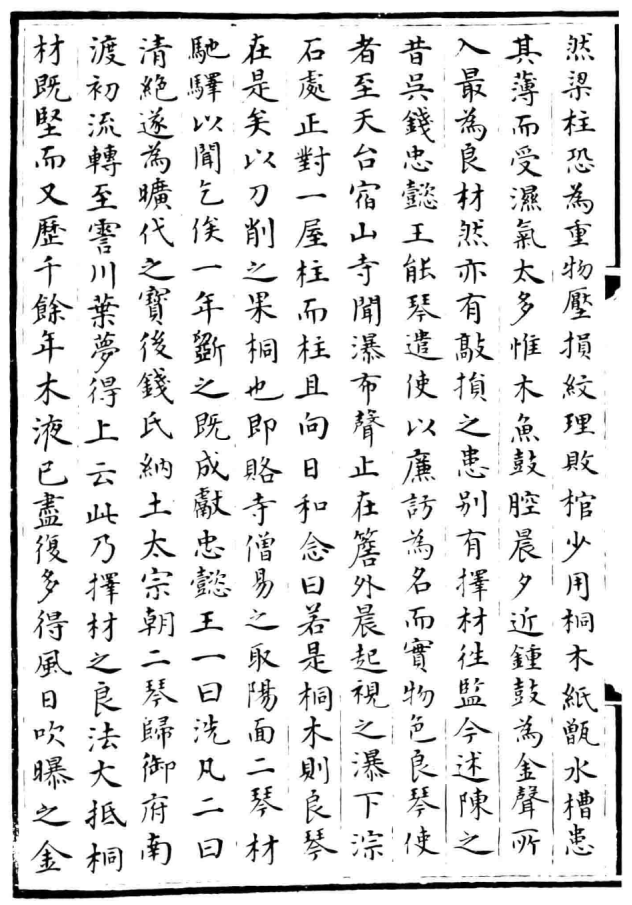 然梁柱恐為重物壓損紋理敗棺少用桐木紙甑水槽患
其薄而受濕氣太多惟木魚鼓腔晨夕近鍾鼓為金聲所
入最為良材然亦有敲損之患别有擇材徃監今述陳之
昔吳錢忠懿王能琴遣使以廉訪為名而實物色良琴使
者至天台宿山寺聞瀑布聲止在簷外晨起視之瀑下淙
石處正對一屋柱而柱且向日和念曰若是桐木則良琴
在是矣以刀削之果桐也即賂寺僧易之取陽面二琴材
馳驛以聞乞俟一年斵之既成獻忠懿王一曰洗凡二曰
清絶遂為曠代之寳後錢氏納土太宗朝二琴歸御府南
渡初流轉至霅川葉夢得上云此乃擇材之良法大抵桐
材既堅而又歷千餘年木液已盡復多得風日吹曝之金